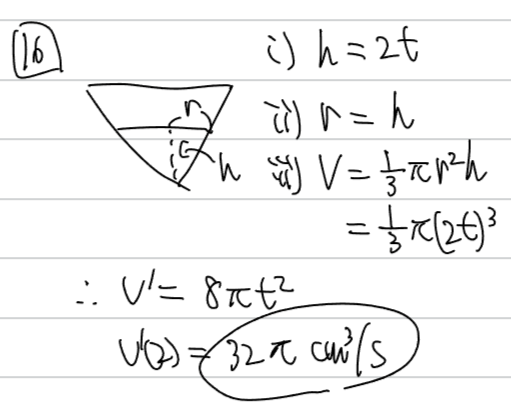 16
i) h = 2t
ii) r = h
iii) V = 1/3 πr²h
= 1/3 π(2t)³
r
h
∴ V' = 8πt²
V'(2) = 32π cm³/s